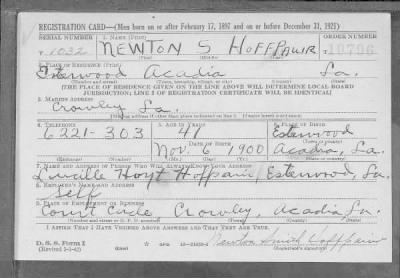 REGISTRATION CARD—(Men born on or after February 17, 1897 and on or before December 31, 1921)
SERIAL NUMBER 1. NAME (Print) ORDER NUMBER
1032 NEWTON S HOFFPAUIR 10796
(First) (Middle) (Last)
2. PLACE OF RESIDENCE (Print)
Esterwood Acadia La.
(Number and street) (Town, township, village, or city) (County) (State)
[THE PLACE OF RESIDENCE GIVEN ON THE LINE ABOVE WILL DETERMINE LOCAL BOARD
JURISDICTION; LINE 2 OF REGISTRATION CERTIFICATE WILL BE IDENTICAL]
3. MAILING ADDRESS
Crowley La.
4. TELEPHONE 5. AGE IN YEARS 6. PLACE OF BIRTH
6221-303 41 Esterwood
DATE OF BIRTH
Nov. 6 1900 Acadia, La.
7. NAME AND ADDRESS OF PERSON WHO WILL ALWAYS KNOW YOUR ADDRESS
Lucille Hoyt Hoffpauir, Esterwood, La.
8. EMPLOYER'S NAME AND ADDRESS
Self
9. PLACE OF EMPLOYMENT OR BUSINESS
Court Circle Crowley, Acadia La.
I AFFIRM THAT I HAVE VERIFIED ABOVE ANSWERS AND THAT THEY ARE TRUE.
D. S. S. Form 1
(Revised 1-1-42) (over)
Newton Smith Hoffpauir
(Registrant's signature)